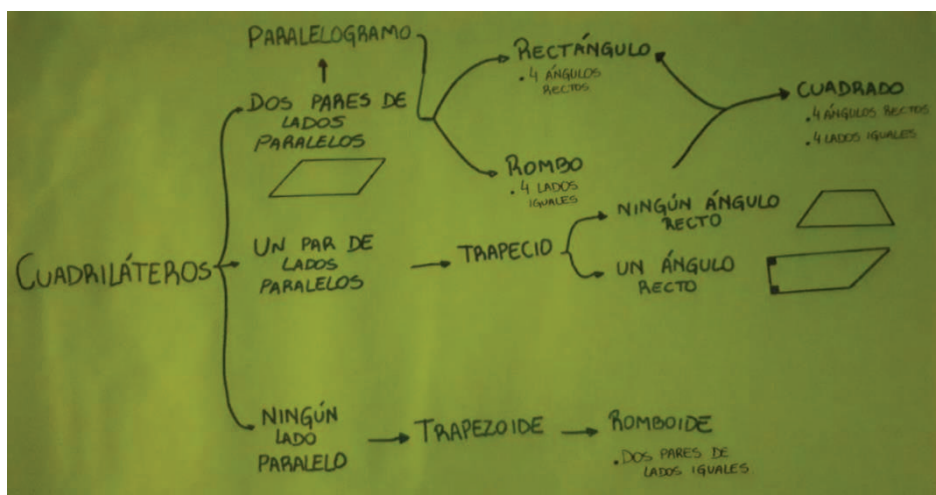 PARALELOGRAMO
DOS PARES DE
LADOS
PARALELOS
RECTÁNGULO
. 4 ÁNGULOS
RECTOS
ROMBO
. 4 LADOS
IGUALES
CUADRADO
. 4 ÁNGULOS RECTOS
. 4 LADOS IGUALES
CUADRILÁTEROS
UN PAR DE
LADOS
PARALELOS
TRAPECIO
NINGÚN ÁNGULO
RECTO
UN ÁNGULO
RECTO
NINGÚN
LADO
PARALELO
TRAPEZOIDE
ROMBOIDE
. DOS PARES DE
LADOS IGUALES